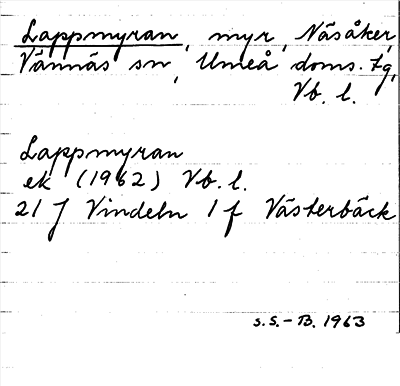 Lappmyran, myr, Näsåker,
Vännäs sn, Umeå doms. tg,
Vb. l.
Lappmyran
ek (1962) Vb. l.
21 J Vindeln 1 f Västerbäck
S.S.-B. 1963